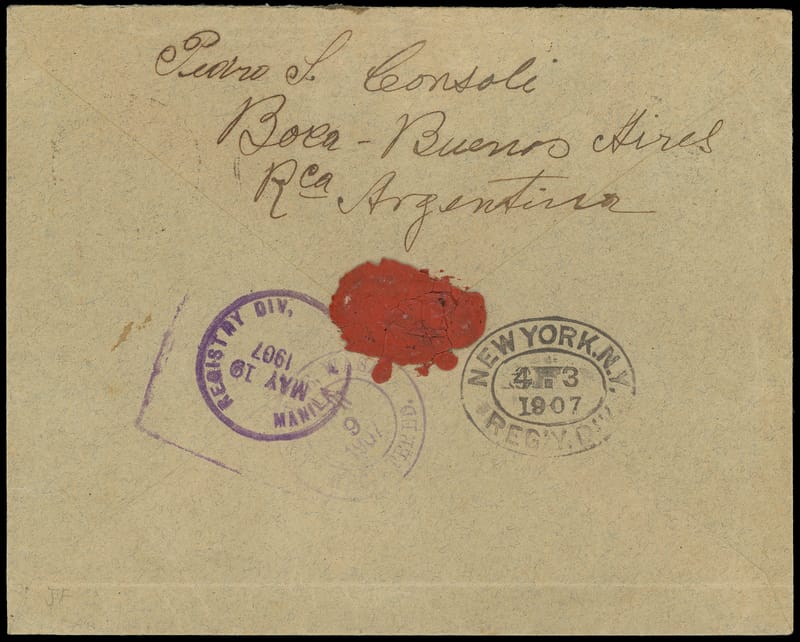 Pedro S. Consoli
Boca - Buenos Aires
Rca Argentina
REGISTRY DIV,
MAY 19
1907
MANILA
9
1907
NEW YORK.N.Y.
4 3
1907
REG'Y. DIV.
JF